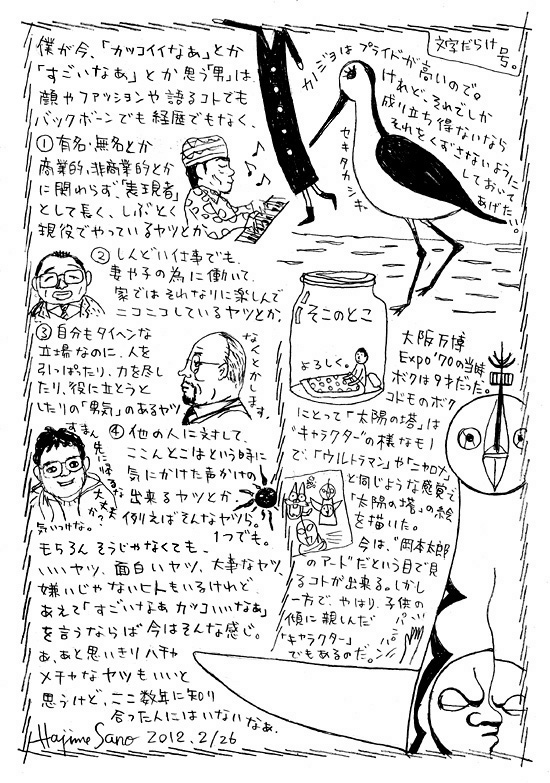 文字だらけ号。
僕が今、「カッコイイなぁ」とか
「すごいなぁ」とか思う「男」は、
顔やファッションや語るコトでも
バックボーンでも経歴でもなく、
①有名・無名とか
商業的、非商業的とか
に関わらず、「表現者」
として長く、しぶとく
現役でやっているヤツとか。
②しんどい仕事でも、
妻や子の為に働いて、
家ではそれなりに楽しんで
ニコニコしているヤツとか。
③自分もタイヘンな
立場なのに、人を
引っぱったり、力を尽し
たり、役に立とうと
したりの「男気」のあるヤツ
なんとかします。
④他の人に対して、
ここんとこはという時に
気にかけた声かけの
出来るヤツとか
例えばそんなヤツら。
1つでも。
すまん
先に帰るな
大丈夫か?
気いつけな。
もちろんそうじゃなくても、
いいヤツ、面白いヤツ、大事なヤツ、
嫌いじゃないヒトもいるけれど、
あえて「すごいなぁカッコいいなぁ」
を言うならば今はそんな感じ。
あ、あと思いきりハチャ
メチャなヤツもいいと
思うけど、ここ数年に知り
合った人にはいないなぁ。
Hajime Sano 2012.2/26
カノジョはプライドが高いので。
けれど、それでしか
成り立ち得ないなら
それをくずさないように
しておいて
あげたい。
セキタカシギ
そこのとこ
よろしく。
大阪万博
Expo'70の当時
ボクは9才だった。
コドモのボク
にとって「太陽の塔」は
"キャラクター"の様なモノ
で、「ウルトラマン」や「ニャロメ」
と同じような感覚で
「太陽の塔」の絵
を描いた。
今は、"岡本太郎
のアート"だという目で見
るコトが出来る。しかし
一方で、やはり、子供の
頃に親しんだ
"キャラクター"
でもあるのだ。